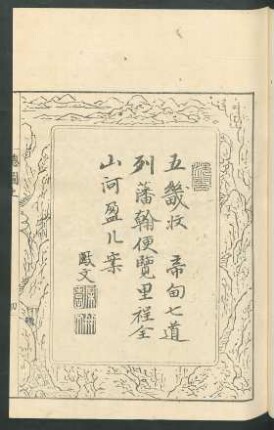 五畿狀　帝甸七道
列藩翰便覽里程全
山河盈几案
　　　　殿文